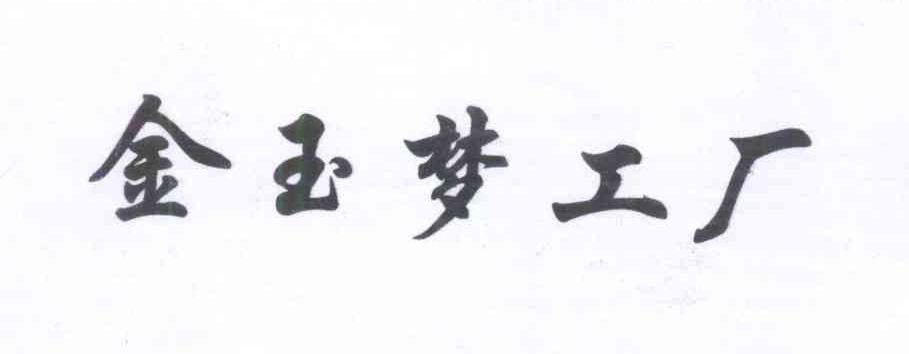 金玉梦工厂